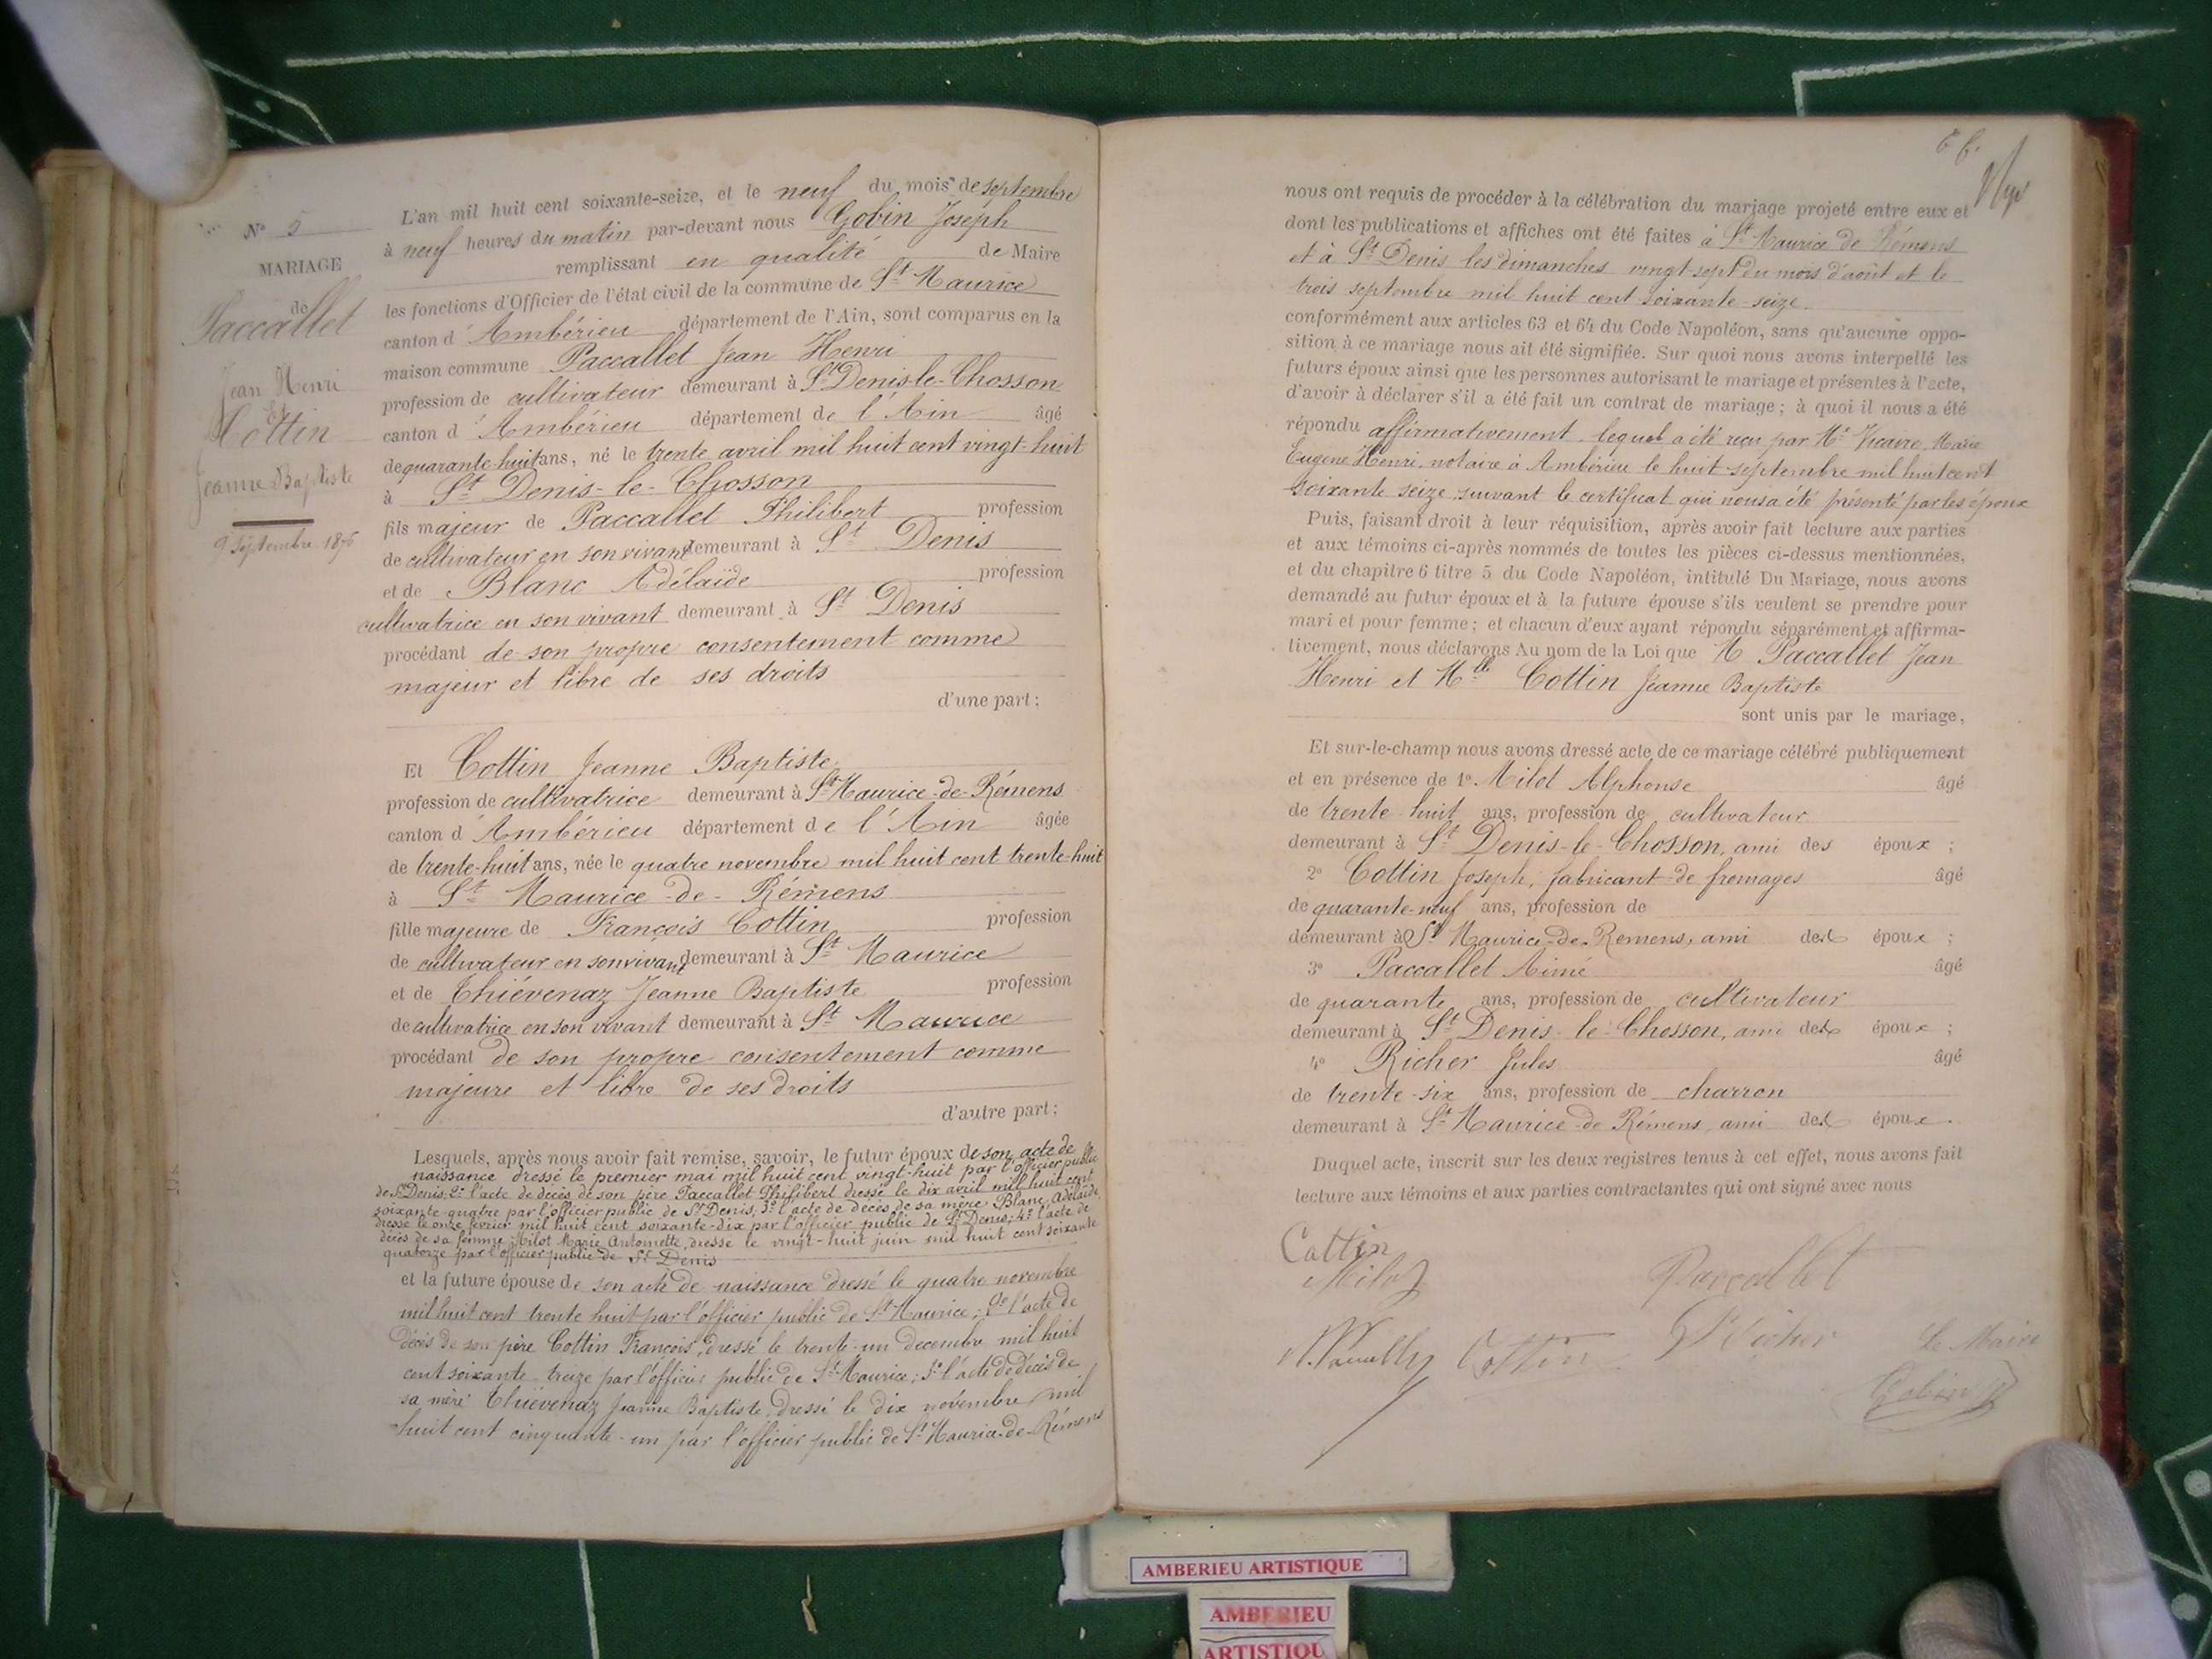 Nº 5
MARIAGE
de
Paccallet
Jean Henri
Et
Cottin
Jeanne Baptiste
9 Septembre 1876
L'an mil huit cent soixante-seize, et le neuf du mois de septembre
à neuf heures du matin par-devant nous Gobin Joseph
remplissant en qualité de Maire
les fonctions d'Officier de l'état civil de la commune de St Maurice
canton d'Ambérieu département de l'Ain, sont comparus en la
maison commune Paccallet Jean Henri
profession de cultivateur demeurant à St Denis-le-Chosson
canton d'Ambérieu département de l'Ain âgé
de quarante-huit ans, né le trente avril mil huit cent vingt-huit
à St Denis-le-Chosson
fils majeur de Paccallet Philibert profession
de cultivateur en son vivant demeurant à St Denis
et de Blanc Adélaïde profession
cultivatrice en son vivant demeurant à St Denis
procédant de son propre consentement comme
majeur et libre de ses droits
d'une part;
Et Cottin Jeanne Baptiste
profession de cultivatrice demeurant à St Maurice-de-Rémens
canton d'Ambérieu département de l'Ain âgée
de trente-huit ans, née le quatre novembre mil huit cent trente-huit
à St Maurice-de-Rémens
fille majeure de François Cottin profession
de cultivateur en son vivant demeurant à St Maurice
et de Thiévenaz Jeanne Baptiste profession
de cultivatrice en son vivant demeurant à St Maurice
procédant de son propre consentement comme
majeure et libre de ses droits
d'autre part;
Lesquels, après nous avoir fait remise, savoir, le futur époux de son acte de
naissance dressé le premier mai mil huit cent vingt-huit par l'officier public
de St Denis; 2º l'acte de décès de son père Paccallet Philibert dressé le dix avril mil huit cent
soixante-quatre par l'officier public de St Denis; 3º l'acte de décès de sa mère Blanc Adélaïde,
dressé le onze février mil huit cent soixante-dix par l'officier public de St Denis; 4º l'acte de
décès de sa femme Milot Marie Antoinette, dressé le vingt-huit juin mil huit cent soixante
quatorze par l'officier public de St Denis
et la future épouse de son acte de naissance dressé le quatre novembre
mil huit cent trente huit par l'officier public de St Maurice; 2º l'acte de
décès de son père Cottin François, dressé le trente-un décembre mil huit
cent soixante treize par l'officier public de St Maurice; 3º l'acte de décès de
sa mère Thiévenaz Jeanne Baptiste, dressé le dix novembre mil
huit cent cinquante-un par l'officier public de St Maurice-de-Rémens
nous ont requis de procéder à la célébration du mariage projeté entre eux et
dont les publications et affiches ont été faites à St Maurice de Rémens
et à St Denis les dimanches vingt-sept du mois d'août et le
trois septembre mil huit cent soixante-seize
conformément aux articles 63 et 64 du Code Napoléon, sans qu'aucune oppo-
sition à ce mariage nous ait été signifiée. Sur quoi nous avons interpellé les
futurs époux ainsi que les personnes autorisant le mariage et présentes à l'acte,
d'avoir à déclarer s'il a été fait un contrat de mariage; à quoi il nous a été
répondu affirmativement, lequel a été reçu par Me Vicaire, Marie
Eugène Henri, notaire à Ambérieu le huit septembre mil huit cent
soixante seize, suivant le certificat qui nous a été présenté par les époux
Puis, faisant droit à leur réquisition, après avoir fait lecture aux parties
et aux témoins ci-après nommés de toutes les pièces ci-dessus mentionnées,
et du chapitre 6 titre 5 du Code Napoléon, intitulé Du Mariage, nous avons
demandé au futur époux et à la future épouse s'ils veulent se prendre pour
mari et pour femme; et chacun d'eux ayant répondu séparément et affirma-
tivement, nous déclarons Au nom de la Loi que M Paccallet Jean
Henri et Mlle Cottin Jeanne Baptiste
sont unis par le mariage,
Et sur-le-champ nous avons dressé acte de ce mariage célébré publiquement
et en présence de 1º Milot Alphonse âgé
de trente-huit ans, profession de cultivateur
demeurant à St Denis-le-Chosson, ami des époux;
2º Cottin Joseph, fabricant de fromages âgé
de quarante-neuf ans, profession de
demeurant à St Maurice-de-Remens, ami des époux;
3º Paccallet Aimé âgé
de quarante ans, profession de cultivateur
demeurant à St Denis-le-Chosson, ami des époux;
4º Richer Jules âgé
de trente-six ans, profession de charron
demeurant à St Maurice-de Rémens, ami des époux.
Duquel acte, inscrit sur les deux registres tenus à cet effet, nous avons fait
lecture aux témoins et aux parties contractantes qui ont signé avec nous
Cottin
Milot
Paccallet
Cottin
Richer
Le Maire
Gobin
AMBERIEU ARTISTIQUE
AMBERIEU
ARTISTIQU